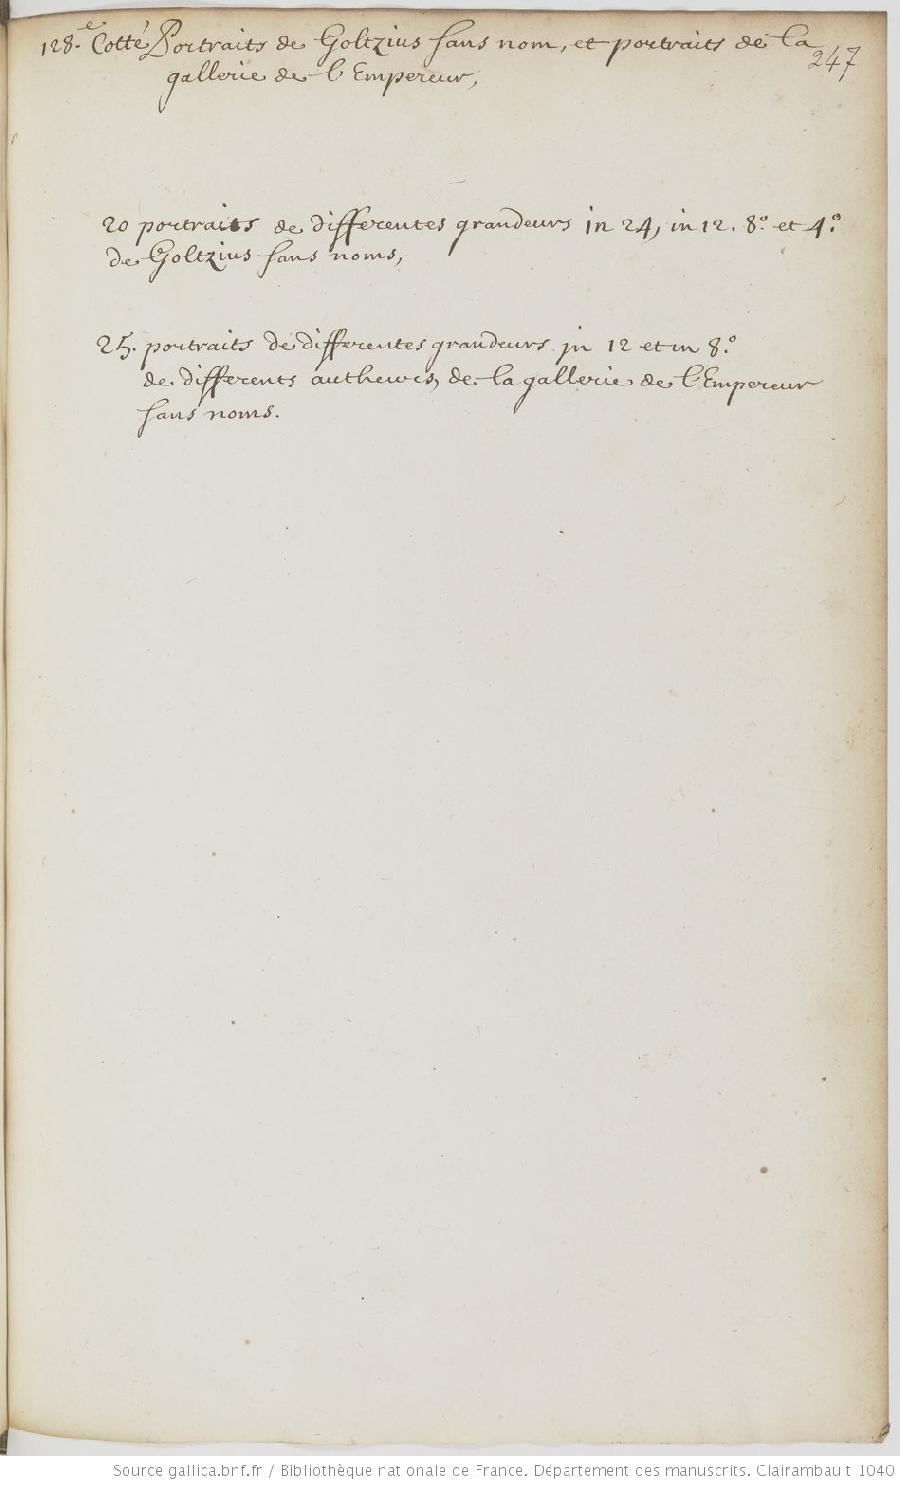 128.e Cotté Portraits de Goltzius sans nom, et portraits de la
247
gallerie de l'Empereur,
20 portraits de differentes grandeurs in 24, in 12. 8.° et 4.°
de Goltzius sans noms,
25. portraits de differentes grandeurs in 12 et in 8.°
de differents autheurs, de la gallerie de l'Empereur
sans noms.
Source gallica.bnf.fr / Bibliothèque nationale de France. Département des manuscrits. Clairambault 1040